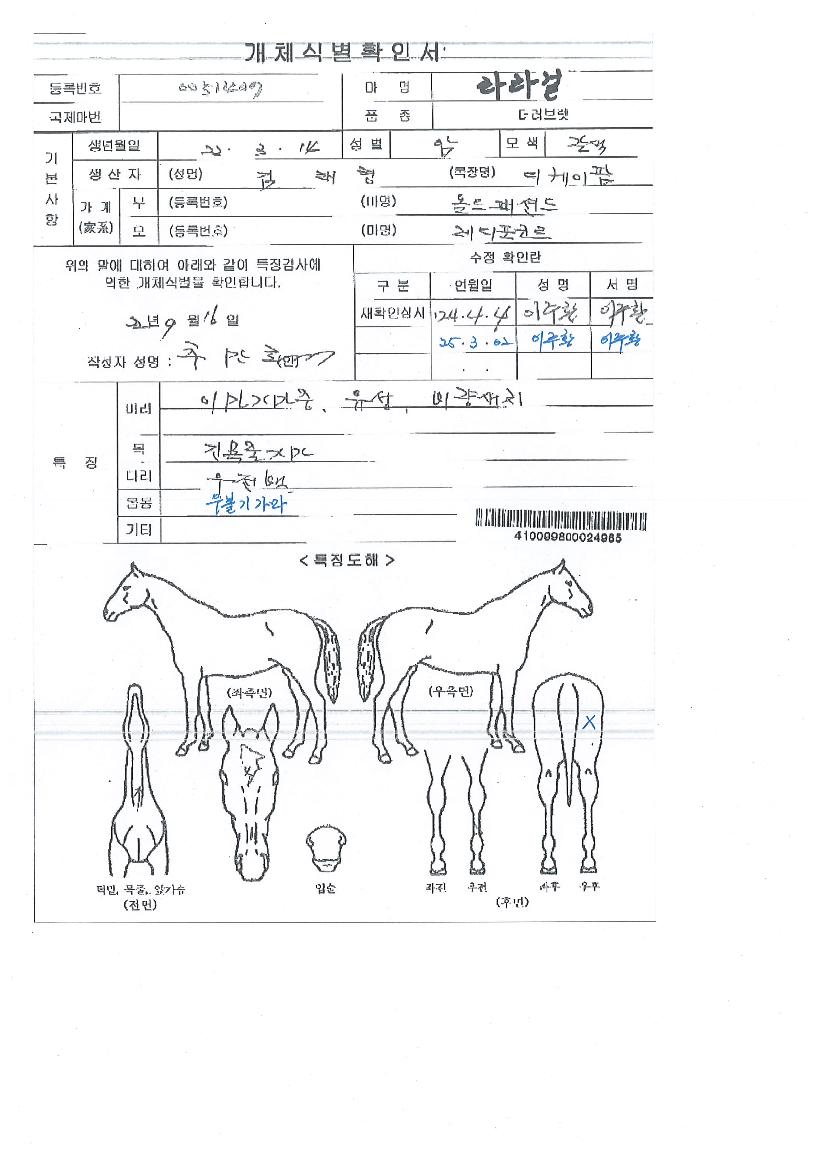 개체식별확인서
등록번호 마 명 라라걸
국제마번 품 종 더러브렛
기본사항
생년월일 22. 3. 14 성별 암 모색 갈색
생산자 (성명) (목장명) 디케이팜
가계(家系) 부 (등록번호) (마명) 올드패션드
모 (등록번호) (마명)
위의 말에 대하여 아래와 같이 특징검사에
의한 개체식별을 확인합니다.
22년 9월 16일
작성자 성명 : (인)
수정 확인란
구분 연월일 성명 서명
재확인심사 '24.4.4 이주환 이주환
25.3.02 이주환 이주환
. .
특징
머리 유성,
목
다리 우전백
몸통 우볼기가마
기타
410099800024965
< 특징도해 >
(좌측면) (우측면)
X
턱밑, 목줄, 앞가슴
(전면)
입술
좌전 우전 좌후 우후
(후면)